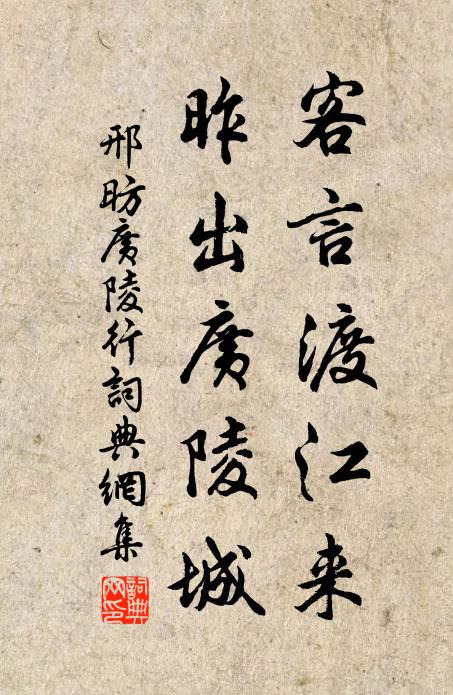 客言渡江来
昨出廣陵城
邢昉廣陵行詞典網集
詞典
网印